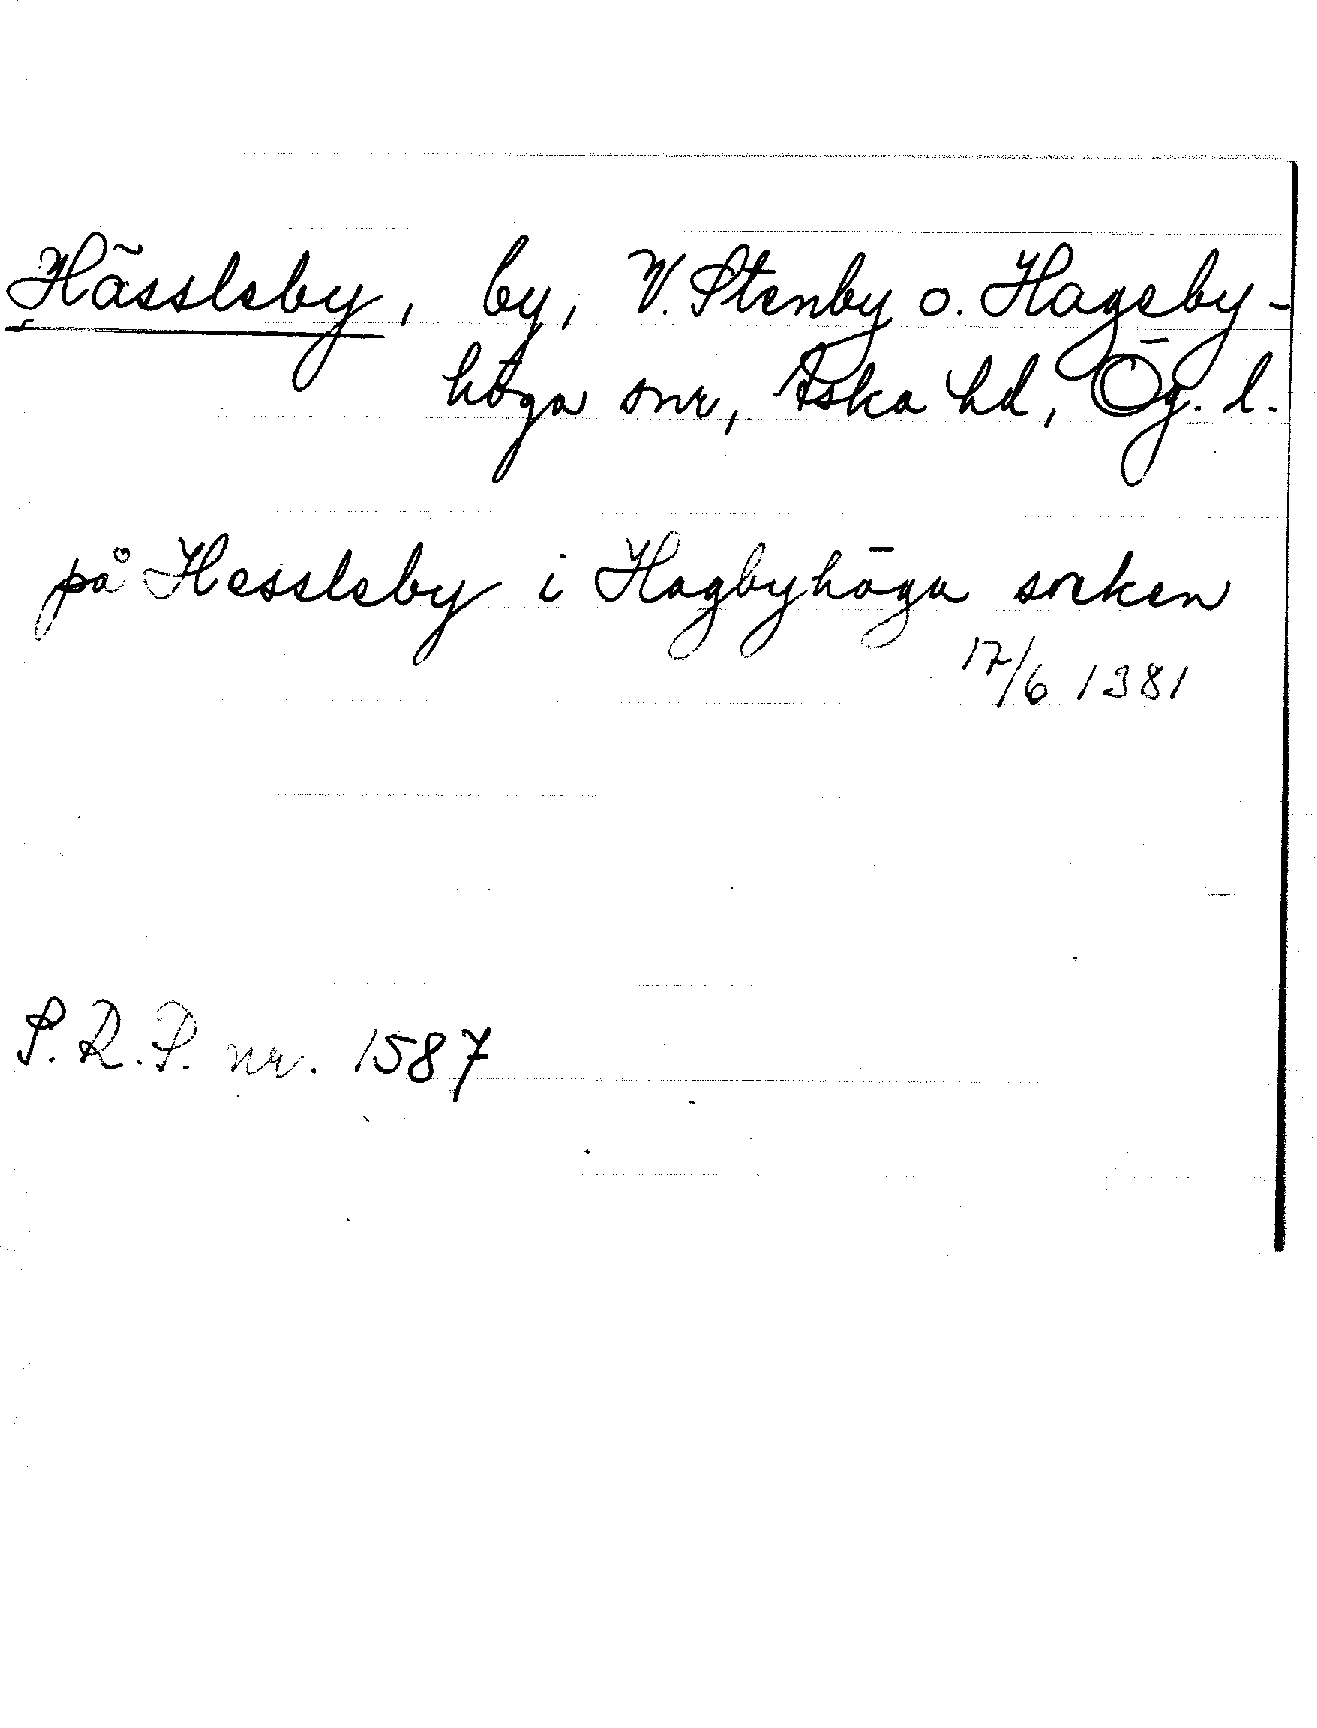 Hässleby, by, V. Stenby o. Hageby-
höga snr, Aska hd, Ög. l.
på Hessleby i Hagbyhöga socken
17/6 1381
S.R.P. nr. 1587